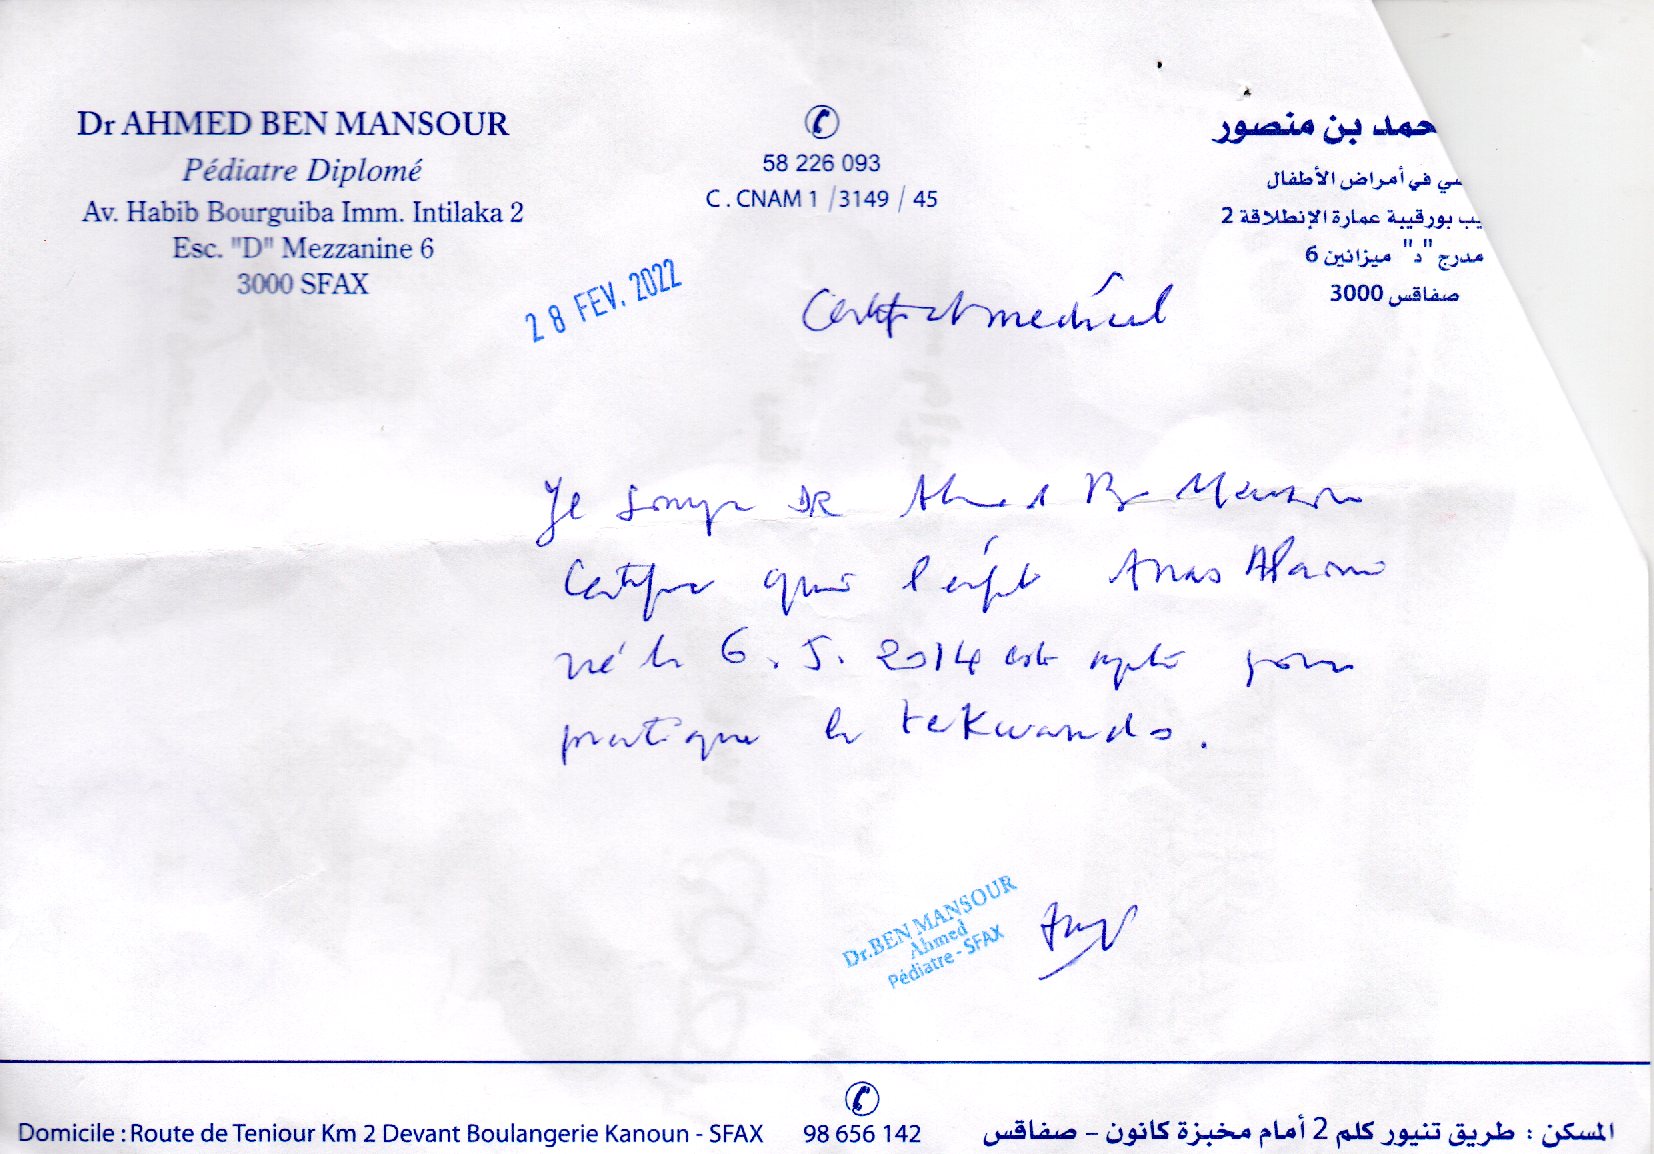 Dr AHMED BEN MANSOUR
Pédiatre Diplomé
Av. Habib Bourguiba Imm. Intilaka 2
Esc. "D" Mezzanine 6
3000 SFAX
58 226 093
C . CNAM 1 / 3149 / 45
حمد بن منصور
في أمراض الأطفال
يب بورقيبة عمارة الإنطلاقة 2
مدرج "د" ميزانين 6
3000 صفاقس
28 FEV. 2022
Certificat médical
Je DR Ahmed Ben Mansour
Certifie que l'enfant Anas
né le 6 . 5 . 2014 est apte pour
pratique le tekwando .
Dr.BEN MANSOUR
Ahmed
Pédiatre - SFAX
Domicile : Route de Teniour Km 2 Devant Boulangerie Kanoun - SFAX
98 656 142
المسكن : طريق تنيور كلم 2 أمام مخبزة كانون – صفاقس